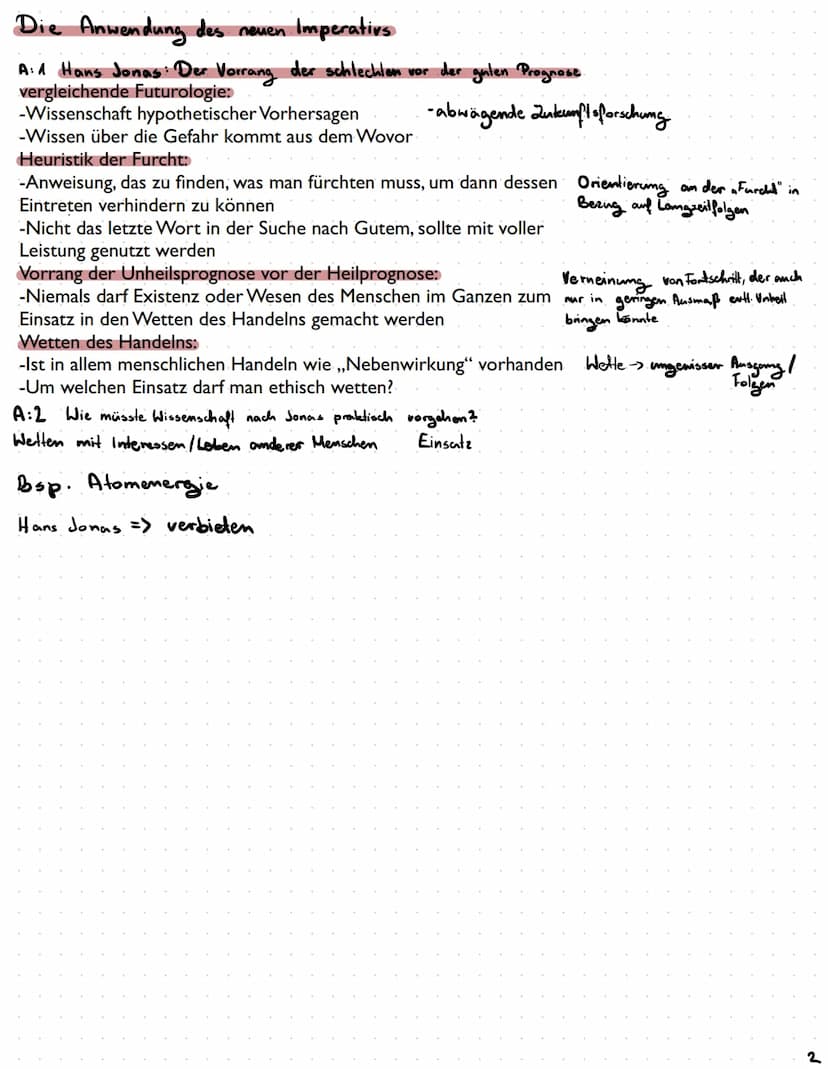 Die Anwendung des neuen Imperativs
A:1 Hans Jonas: Der Vorrang der schlechten vor der guten Prognose
vergleichende Futurologie:
-Wissenschaft hypothetischer Vorhersagen -abwägende Zukunftsforschung
-Wissen über die Gefahr kommt aus dem Wovor
Heuristik der Furcht:
-Anweisung, das zu finden, was man fürchten muss, um dann dessen Orientierung an der „Furcht" in
Eintreten verhindern zu können Bezug auf Langzeitfolgen
-Nicht das letzte Wort in der Suche nach Gutem, sollte mit voller
Leistung genutzt werden
Vorrang der Unheilsprognose vor der Heilprognose: Verneinung von Fortschritt, der auch
-Niemals darf Existenz oder Wesen des Menschen im Ganzen zum nur in geringen Ausmaß evtl. Unheil
Einsatz in den Wetten des Handelns gemacht werden bringen könnte
Wetten des Handelns:
-Ist in allem menschlichen Handeln wie „Nebenwirkung“ vorhanden Wette -> ungewisser Ausgang/
Folgen
-Um welchen Einsatz darf man ethisch wetten?
A:2 Wie müsste Wissenschaft nach Jonas praktisch vorgehen?
Wetten mit Interessen/Leben anderer Menschen Einsatz
Bsp. Atomenergie
Hans Jonas => verbieten
2